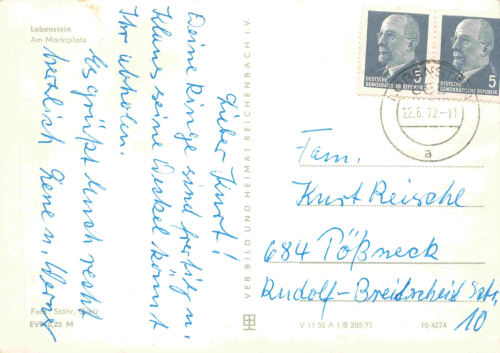 Lobenstein
Am Marktplatz
Lieber Kurt!
Deine Ringe sind fertig u.
Klaus seine Deckel könnt
Ihr abholen.
Es grüßt Euch recht
herzlich Lene u. Werner
Foto: Stöhr,
EVP 0,25 M
VEB BILD UND HEIMAT REICHENBACH i. V.
5
DEUTSCHE
DEMOKRATISCHE REPUBLIK
5
DEUTSCHE
DEMOKRATISCHE REPUBLIK
22.6.72-11
a
Fam.
Kurt Reischl
684 Pößneck
Rudolf-Breitscheid Str.
10
V 11 50 A 1 B 205/71
10/4274